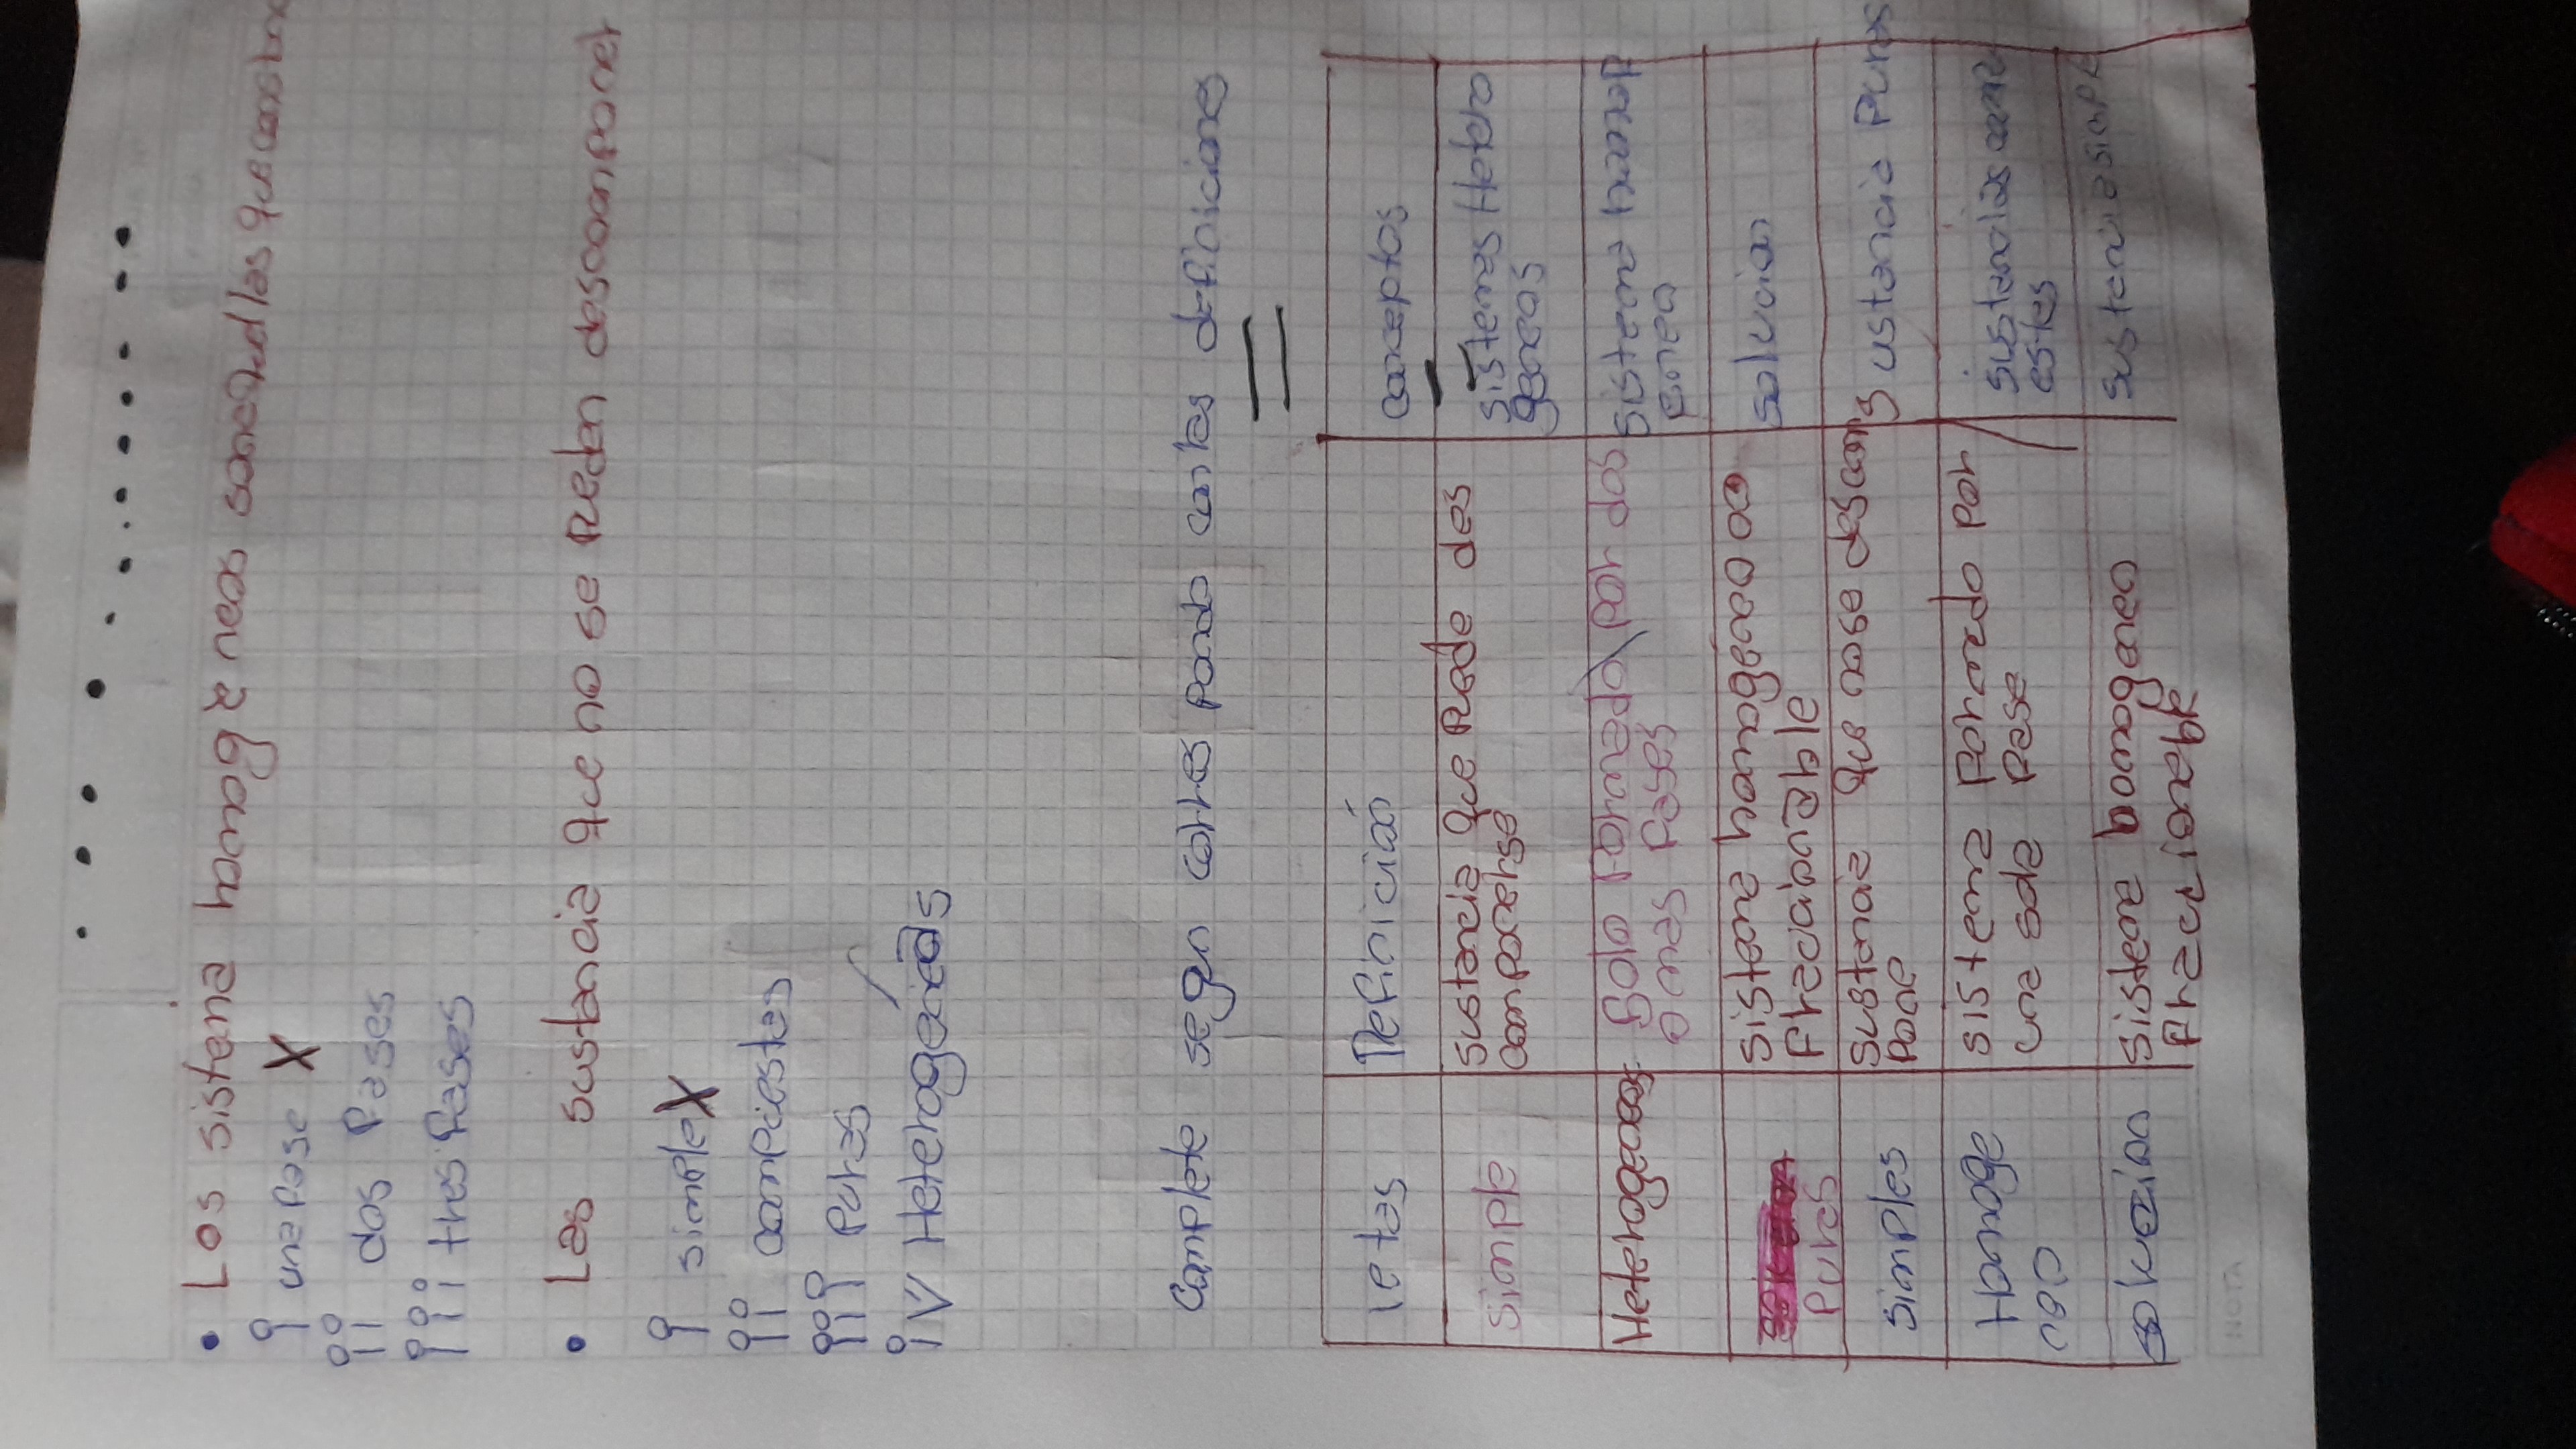 • Los sistema homogeneos son aquellas que const
i una fase X
ii dos fases
iii tres fases
• Las sustancia que no se pueden descomponer
i simple X
ii compuestas
iii Puras
iV Heterogeneas
Complete segun corres ponda con las definiciones
letas Definición conceptos
simple sustancia que Puede des
componerse sistemas Hetero
geneos
Heterogeneos solo formado por dos
o mas fases sistema homog
eneo
Puras sistema homogéneo no
fraccionable solucion
simples Sustancia que no se descom
pone Sustancia Puras
Homoge
neo sistema formado por
una sola fase sustancias com
estas
solucion sistema homogeneo
fraccionable sustancia simple